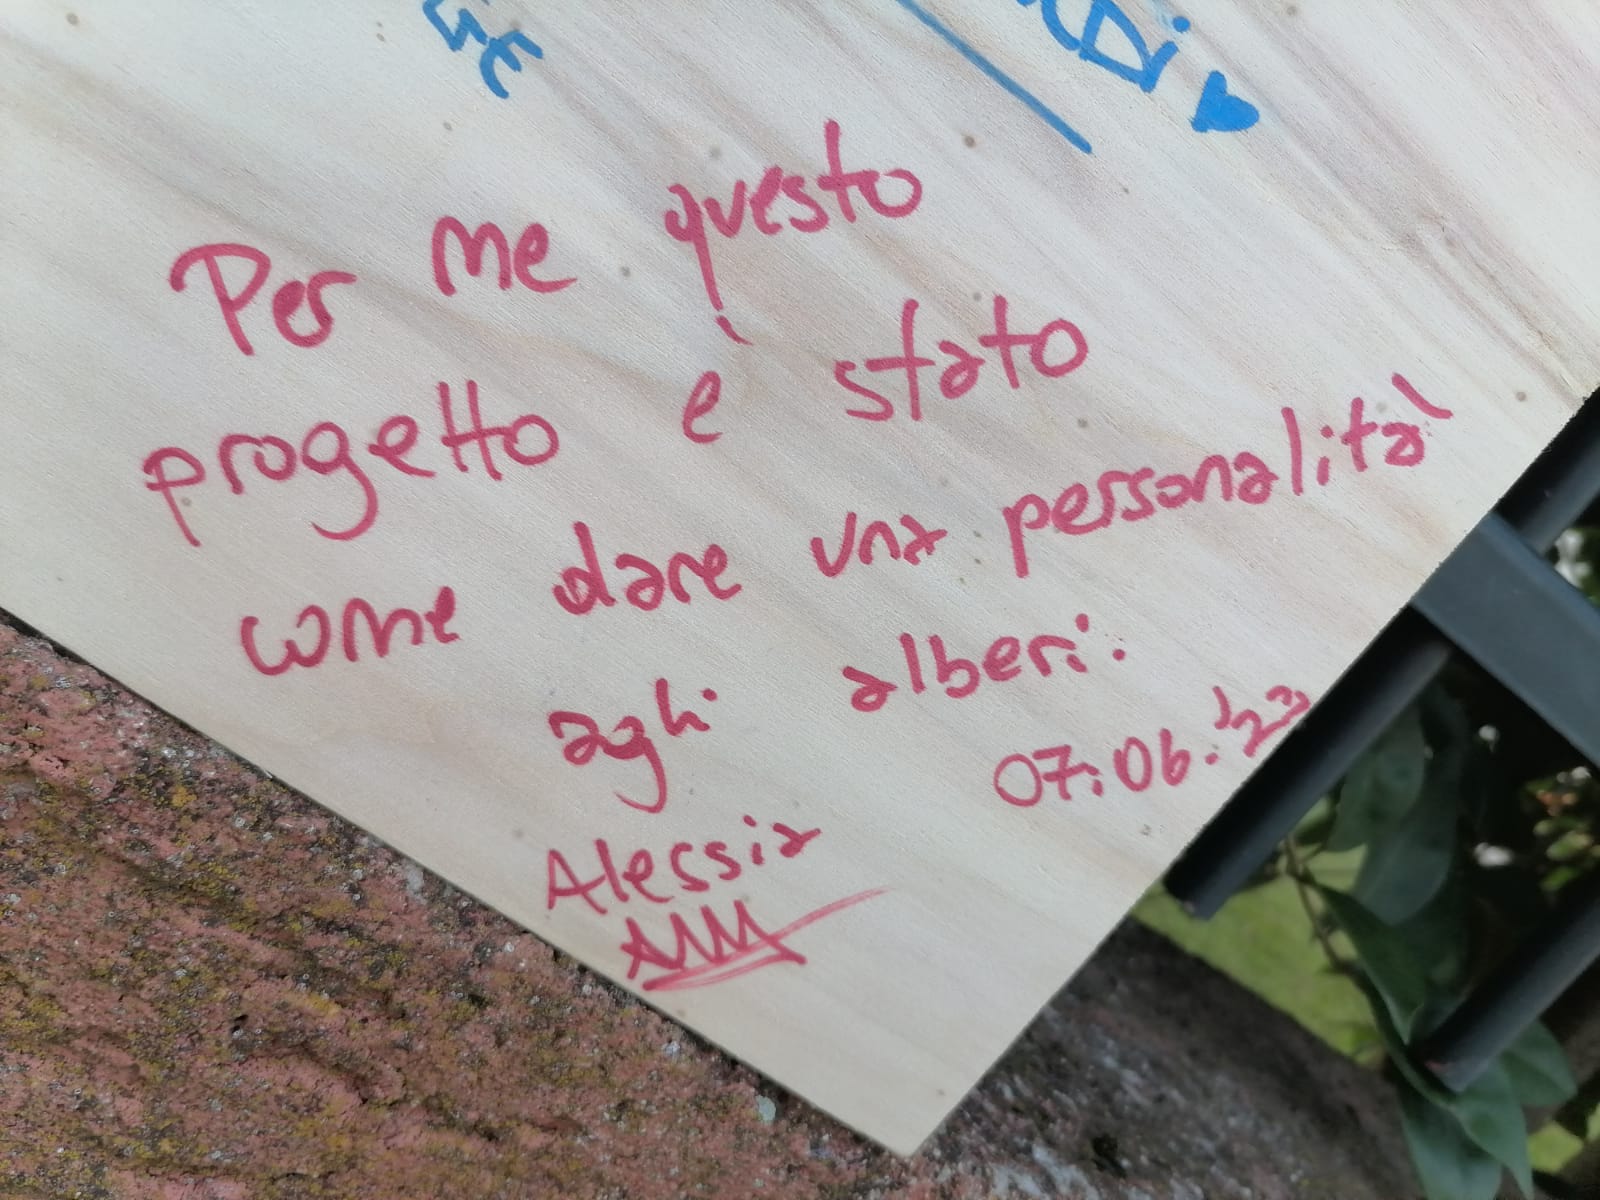 Per me questo
progetto è stato
come dare una personalità
agli alberi.
07.06.'23
Alessia